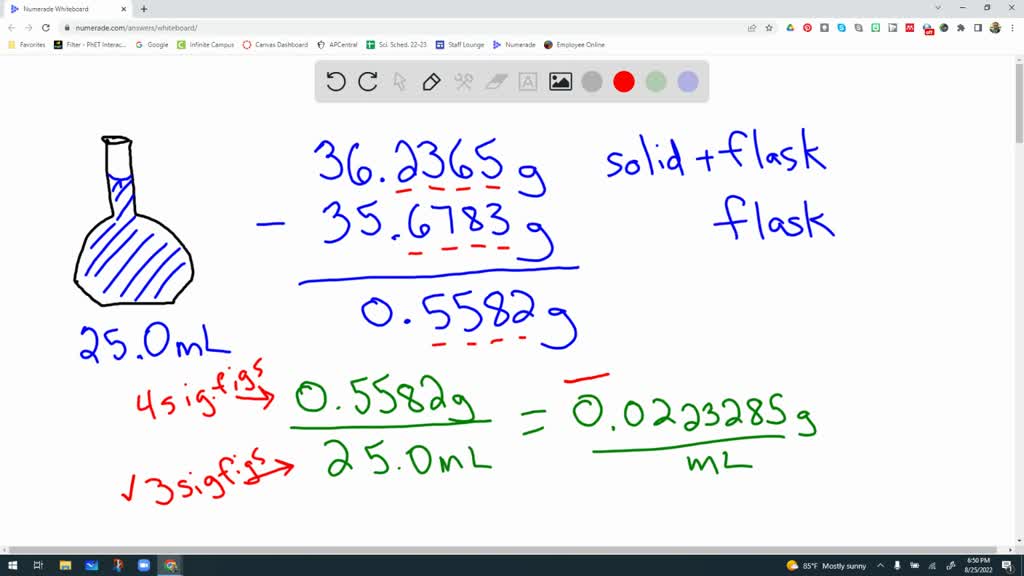 Numerade Whiteboard
numerade.com/answers/whiteboard/
Favorites Filter - PhET Interac... Google Infinite Campus Canvas Dashboard APCentral Sci. Sched. 22-23 Staff Lounge Numerade Employee Online
off
A
36.2365 g solid + flask
- 35.6783 g flask
0.5582 g
25.0 mL
4 sig. figs → 0.5582 g = 0.0223285 g
√ 3 sig figs → 25.0 mL mL
85°F Mostly sunny
6:50 PM
8/25/2022